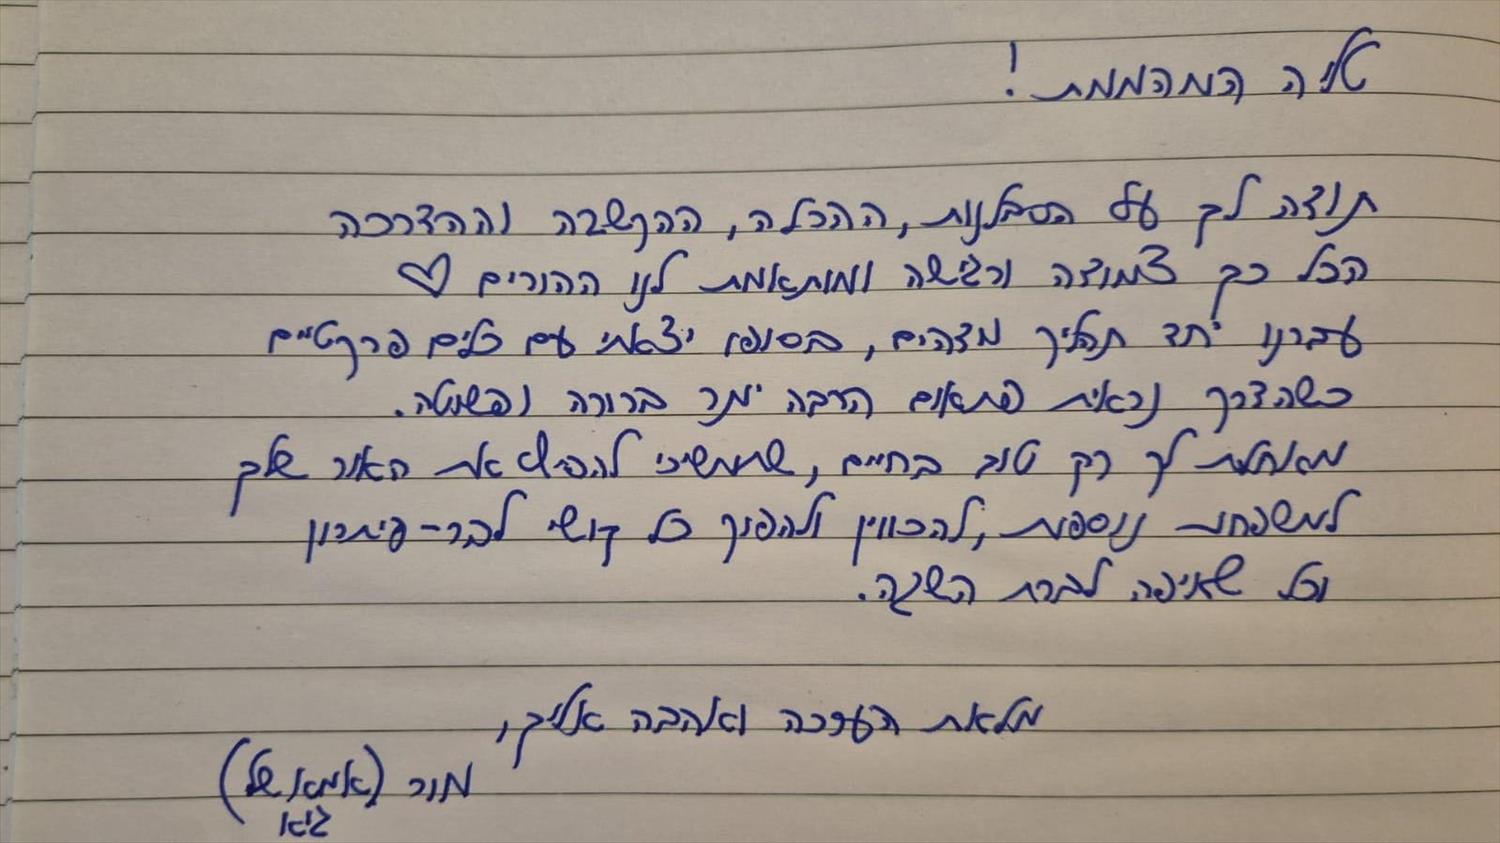 טליה המהממת!
תודה לך על הסבלנות, ההכלה, ההקשבה וההדרכה
הכל כך צמודה ורגישה ומותאמת לנו ההורים ♡
עברנו יחד תהליך מדהים, בסופו יצאתי עם כלים פרקטיים
כשהדרך נראית פתאום הרבה יותר ברורה ופשוטה.
מאחלת לך רק טוב בחיים, שתמשיכי להפיץ את האור שלך
למשפחות נוספות, להכווין ולהפוך כל קושי לבר-פיתרון
וכל שאיפה לברת השגה.
מלאת הערכה ואהבה אלייך,
מור (אמא של
גיא)